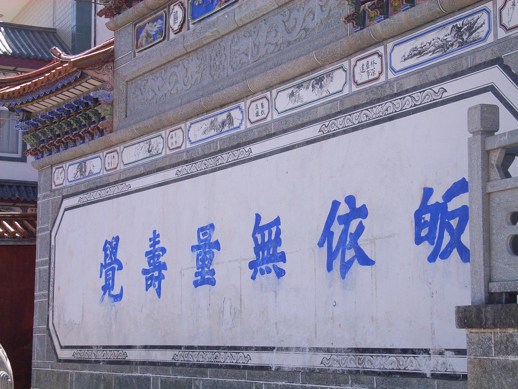 皈依無量壽覺